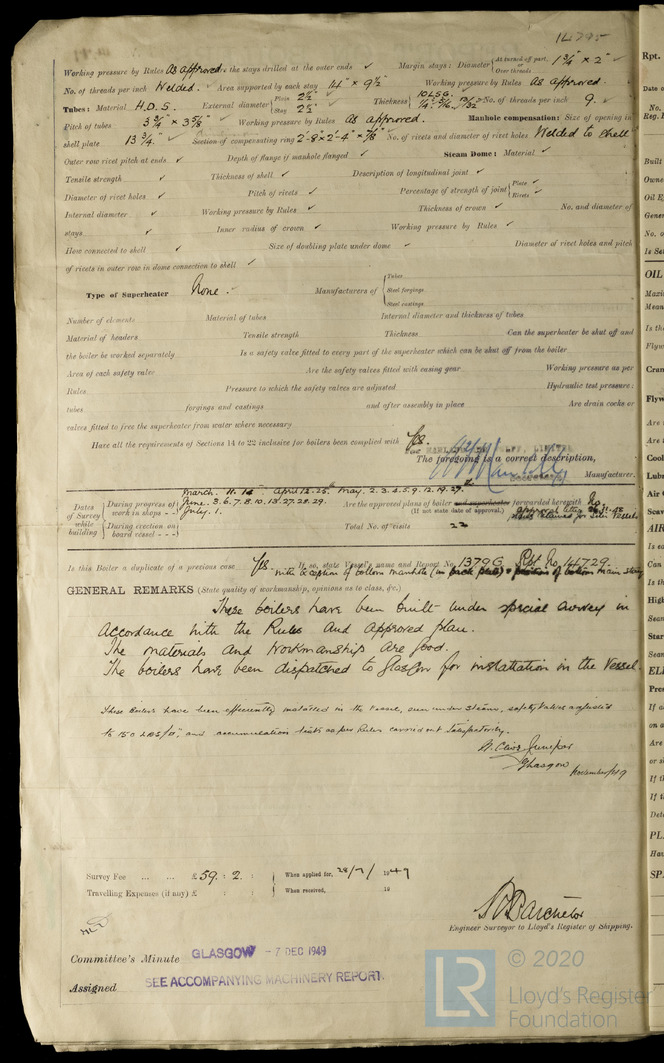 14795
Working pressure by Rules As approved Are the stays drilled at the outer ends ✓ Margin stays: Diameter { At turned off part, or Over threads 1 3/4" × 2" ✓
No. of threads per inch Welded. ✓ Area supported by each stay 14" × 9 1/2" Working pressure by Rules As approved.
Tubes: Material H.D.S. External diameter { Plain 2 1/2" Stay 2 1/2" Thickness { 10 LSG. 1/4" 5/16" No. of threads per inch 9. ✓
Pitch of tubes 3 3/4" × 3 5/8" Working pressure by Rules As approved. Manhole compensation: Size of opening in
shell plate 13 3/4" ✓ Section of compensating ring 2'-8" × 2'-4" × 7/8" No. of rivets and diameter of rivet holes Welded to shell
Outer row rivet pitch at ends ✓ Depth of flange if manhole flanged ✓ Steam Dome: Material ✓
Tensile strength ✓ Thickness of shell ✓ Description of longitudinal joint ✓
Diameter of rivet holes ✓ Pitch of rivets ✓ Percentage of strength of joint { Plate ✓ Rivets ✓
Internal diameter ✓ Working pressure by Rules ✓ Thickness of crown ✓ No. and diameter of
stays ✓ Inner radius of crown ✓ Working pressure by Rules ✓
How connected to shell ✓ Size of doubling plate under dome ✓ Diameter of rivet holes and pitch
of rivets in outer row in dome connection to shell ✓
Type of Superheater None. ✓ Manufacturers of { Tubes Steel forgings Steel castings
Number of elements Material of tubes Internal diameter and thickness of tubes
Material of headers Tensile strength Thickness Can the superheater be shut off and
the boiler be worked separately Is a safety valve fitted to every part of the superheater which can be shut off from the boiler
Area of each safety valve Are the safety valves fitted with easing gear Working pressure as per
Rules Pressure to which the safety valves are adjusted Hydraulic test pressure:
tubes forgings and castings and after assembly in place Are drain cocks or
valves fitted to free the superheater from water where necessary
Have all the requirements of Sections 14 to 22 inclusive for boilers been complied with Yes.
For HARLAND & WOLFF, LIMITED
The foregoing is a correct description,
Secretary Manufacturer.
Dates of Survey while building { During progress of work in shops - - March. 11. 14 April 12. 25. May. 2. 3. 4. 5. 9. 12. 19. 27.
June. 3. 6. 7. 8. 10. 13. 27. 28. 29.
July. 1.
Are the approved plans of boiler and superheater forwarded herewith No
(If not state date of approval.) approval letter
During erection on board vessel - - - Total No. of visits 22
Is this Boiler a duplicate of a previous case Yes. If so, state Vessel's name and Report No. 1379G. Rpt. No. 14729.
with exception of bottom manhole
GENERAL REMARKS (State quality of workmanship, opinions as to class, &c.)
These boilers have been built under special survey in
accordance with the Rules and approved plan.
The materials and workmanship are good.
The boilers have been dispatched to Glasgow for installation in the Vessel.
These boilers have been efficiently installed in the vessel, seen under steam, safety valves adjusted
to 150 LBS/□", and accumulation tests as per Rules carried out satisfactorily.
Glasgow
November 1949
Survey Fee ... ... £59 : 2 : When applied for, 28/7/1949
Travelling Expenses (if any) £ : : When received, 19
Engineer Surveyor to Lloyd's Register of Shipping.
Committee's Minute GLASGOW - 7 DEC 1949
Assigned SEE ACCOMPANYING MACHINERY REPORT.
LR © 2020
Lloyd's Register
Foundation
Rpt.
Date o
No.
Reg. 
Built
Owne
Oil E
Gener
No. o
Is Se
OIL
Is th
Flyw
Cran
Flyw
Are
Are
Cool
Lubr
Air
AIR
Is ea
Can
Is th
High
Star
Prec
If a
on a
Are
or s
If th
If th
PL
SP